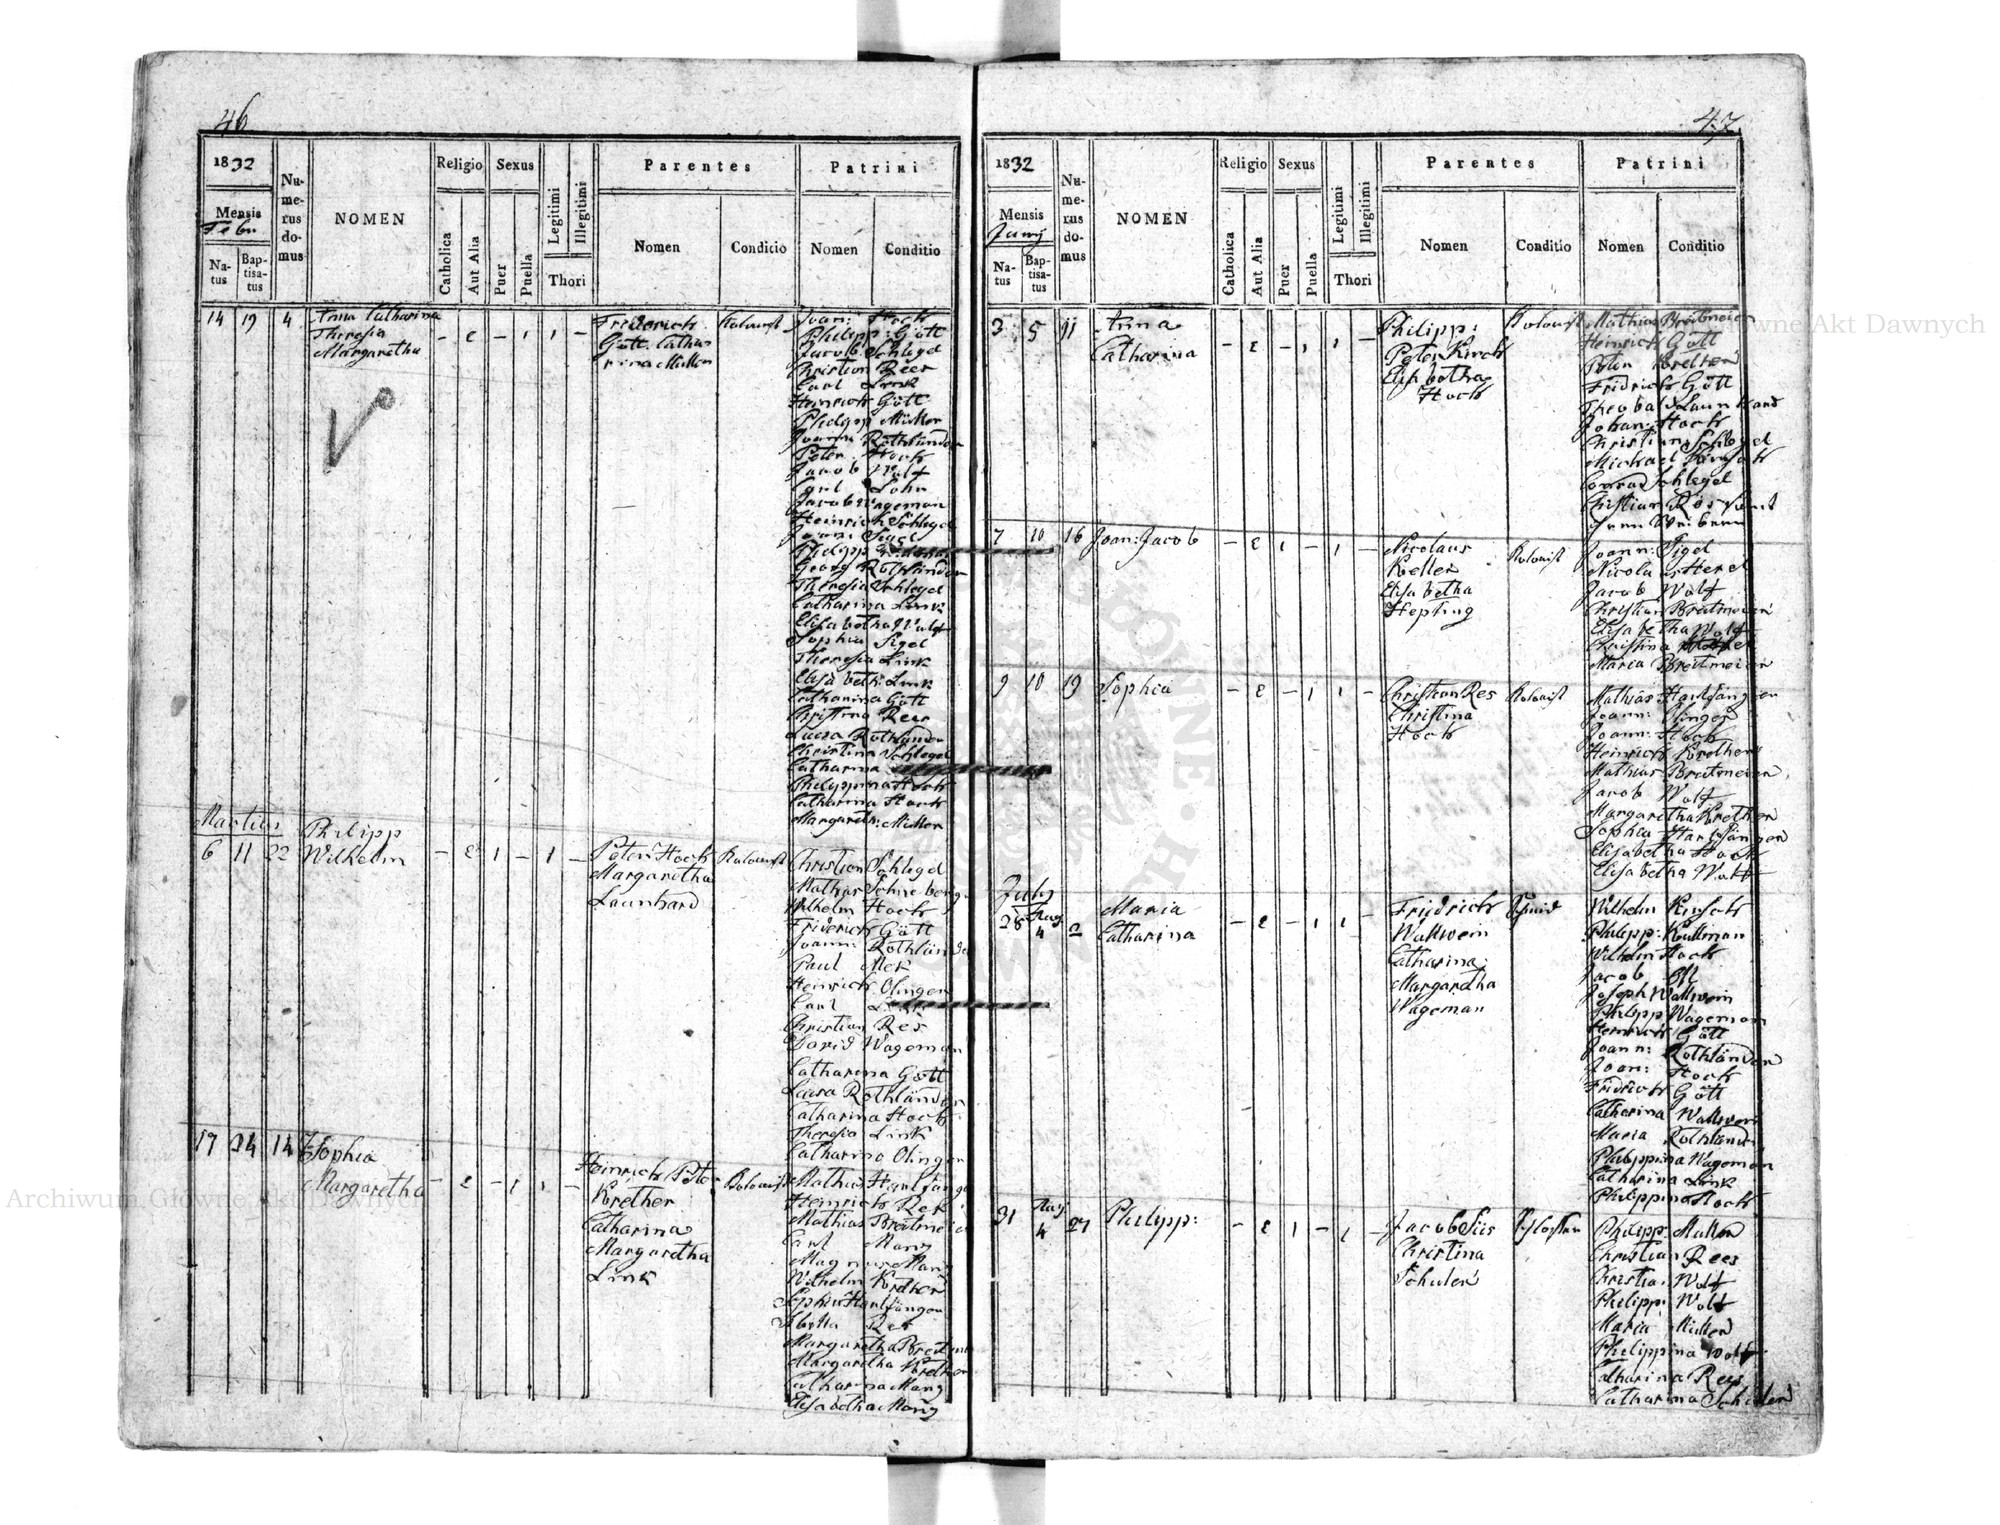 46
1832
Mensis
Febr
Na-
tus
Bap-
tisa-
tus
Nu-
me-
rus
do-
mus
NOMEN
Religio
Catholica
Aut Alia
Sexus
Puer
Puella
Legitimi
Illegitimi
Thori
Parentes
Nomen
Condicio
Patrini
Nomen
Conditio
14 19 4
Anna Catharina
Theresia
Margaretha
- 2 - 1 1 -
Friderich
Gött Catha
rina Muller
Kolonist
Joan: Hock
Philipp: Gött
Jacob Schlegel
Christian Rees
Carl Link
Heinrich Gött
Philipp Müller
Joann Rothländer
Peter Hock
Jacob Wolf
Carl Lohr
Jacob Wageman
Heinrich Schlegel
Joann: Sigel
Philipp
Georg Rothländer
Theresia Schlegel
Catharina Link
Elisabetha Wolf
Sophia Sigel
Theresia Link
Elisabeth: Link
Catharina Gött
Christina Rees
Luisa Rothländer
Christina Schlegel
Catharina
Philippina Hock
Catharina Hock
Margareth: Müller
Martius
6 11 22
Philipp
Wilhelm
- 2 1 - 1 -
Peter Hock
Margaretha
Launhard
Kolonist
Christian Schlegel
Mathias Schneberger
Wilhelm Hock
Friderich Gött
Joann: Rothländer
Paul Mek
Heinrich Olinger
Carl Link
Christian Res
David Wageman
Catharina Gött
Luisa Rothländer
Catharina Hock
Theresia Link
Catharina Olinger
17 24 14
Sophia
Margaretha
- 2 - 1 1 -
Heinrich Peter
Krether
Catharina
Margaretha
Link
Kolonist
Mathias Hartfänger
Heinrich Res
Mathias Breitmeier
Carl Many
Magnus Many
Wilhelm Krether
Sophia Hartfänger
Res
Margaretha Breitm
Margaretha Krether
Catharina Many
Elisabetha Many
47
1832
Mensis
Juny
Na-
tus
Bap-
tisa-
tus
Nu-
me-
rus
do-
mus
NOMEN
Religio
Catholica
Aut Alia
Sexus
Puer
Puella
Legitimi
Illegitimi
Thori
Parentes
Nomen
Conditio
Patrini
Nomen
Conditio
3 5 11
Anna
Catharina
- 2 - 1 1 -
Philipp:
Peter Kirch
Elisabetha
Hock
Kolonist
Mathias Breitmeier
Heinrich Gött
Peter Krether
Fridrich Gött
Theobald Launhard
Johan: Hock
Christian Schlegel
Michael
Conrad Schlegel
Christian
7 10 16
Joan: Jacob
- 2 1 - 1 -
Nicolaus
Keller
Elisabetha
Hepting
Kolonist
Joann: Sigel
Nicolaus Herel
Jacob Wolf
Christian Breitmeier
Elisabetha Wolf
Christina
Maria Breitmeier
9 10 19
Sophia
- 2 - 1 1 -
Christian Res
Christina
Hock
Kolonist
Mathias Hartfänger
Joann: Olinger
Joann: Hock
Heinrich Krether
Mathias Breitmeier
Jacob Wolf
Margaretha Krether
Sophia Hartfänger
Elisabetha Hock
Elisabetha Wolf
July
28 Aug 4 2
Maria
Catharina
- 2 - 1 1 -
Fridrich
Wallwein
Catharina
Margaretha
Wageman
Schmid
Wilhelm Kirsch
Philipp: Kullman
Wilhelm Hock
Jacob Ott
Joseph Wallwein
Philipp Wageman
Heinrich Gött
Joann: Rothländer
Joan: Hock
Fridrich Gött
Catharina Wallwein
Maria Rothländer
Philippina Wageman
Catharina Link
Philippina Hock
31 Aug 4 27
Philipp:
- 2 1 - 1 -
Jacob Süs
Christina
Schuler
Schlosser
Philipp: Muller
Christian Rees
Christia: Wolf
Philipp: Wolf
Maria Muller
Philippina Wolf
Catharina Rees
Catharina Schuler
Archiwum Główne Akt Dawnych
Główne Akt Dawnych